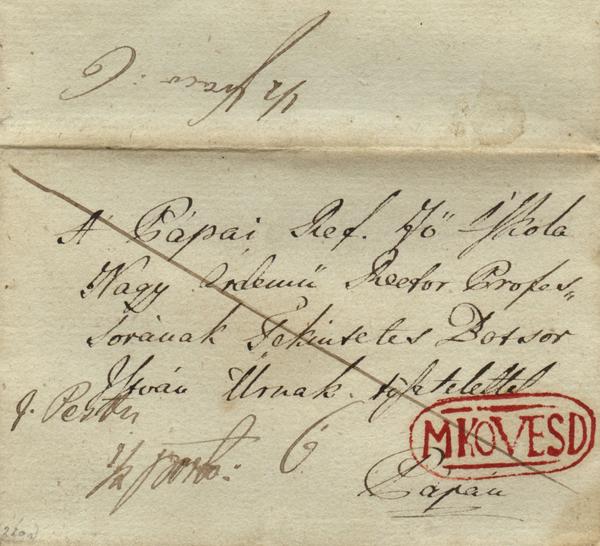 1/2 franco: 6
A' Pápai Ref. Fő Iskola
Nagy érdemü Rector Profes„
sorának Tekintetes Botsor
István Úrnak. tisztelettel
p. Pesten
1/2 porto: 6
MKÖVESD
Pápán